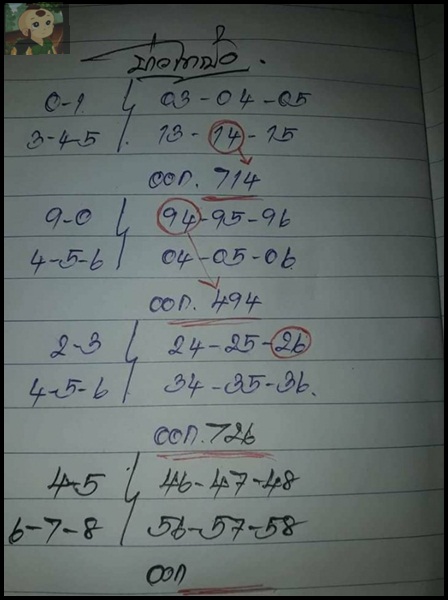 0-1 03-04-05
3-4-5 13-14-15
ออก. 714
9-0 94-95-96
4-5-6 04-05-06
ออก. 494
2-3 24-25-26
4-5-6 34-35-36.
ออก. 726
4-5 46-47-48
6-7-8 56-57-58
ออก